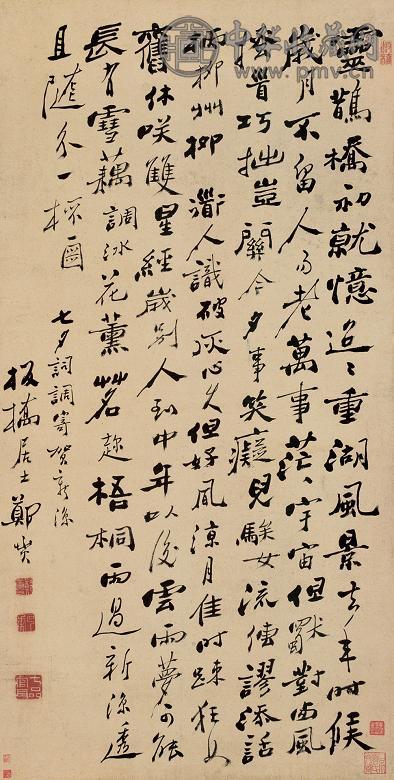 中华收藏网
www.pmv.cn
靈鵲橋初就憶迢〻重湖風景去年時候
歲月不留人易老萬事茫〻宇宙但獸對西風
搔首巧拙豈關今夕事笑癡兒騃女流傳謬添話
柄柳州柳道人識破灰心久但好風涼月佳時疎狂如
舊休咲雙星經歲別人到中年以後雲雨夢可能
長有雪藕調冰花薰茗趁梧桐雨過新涼透
且隨分一
七夕詞調寄賀新涼
板橋居士鄭燮
七品官耳